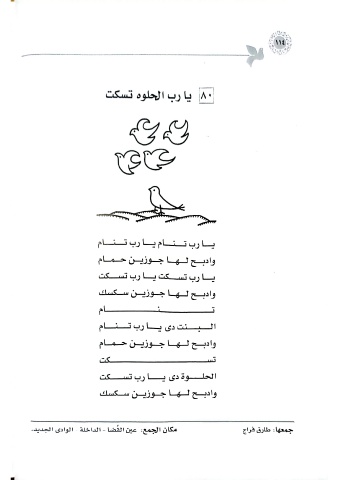 ١١٤
٨٠ يارب الحلوه تسكت
يارب تنام يارب تنام
وادبح لها جوزين حمام
يارب تسكت يارب تسكت
وادبح لها جوزين سكسك
تنـــــــــام
البنت دى يارب تنام
وادبح لها جوزين حمام
تســـــــــكت
الحلوة دى يارب تسكت
وادبح لها جوزين سكسك
جمعها: طارق فراج
مكان الجمع: عين القضا - الداخلة - الوادى الجديد.